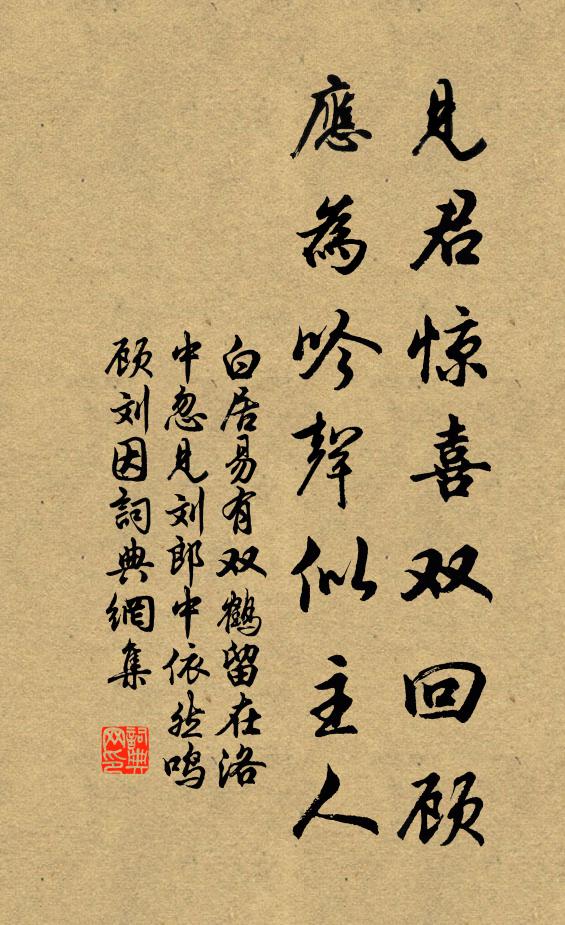 见君惊喜双回顾
應為吟聲似主人
白居易有双鶴留在洛
中忽见刘郎中依然鸣
顾刘因詞典網集
詞典网印